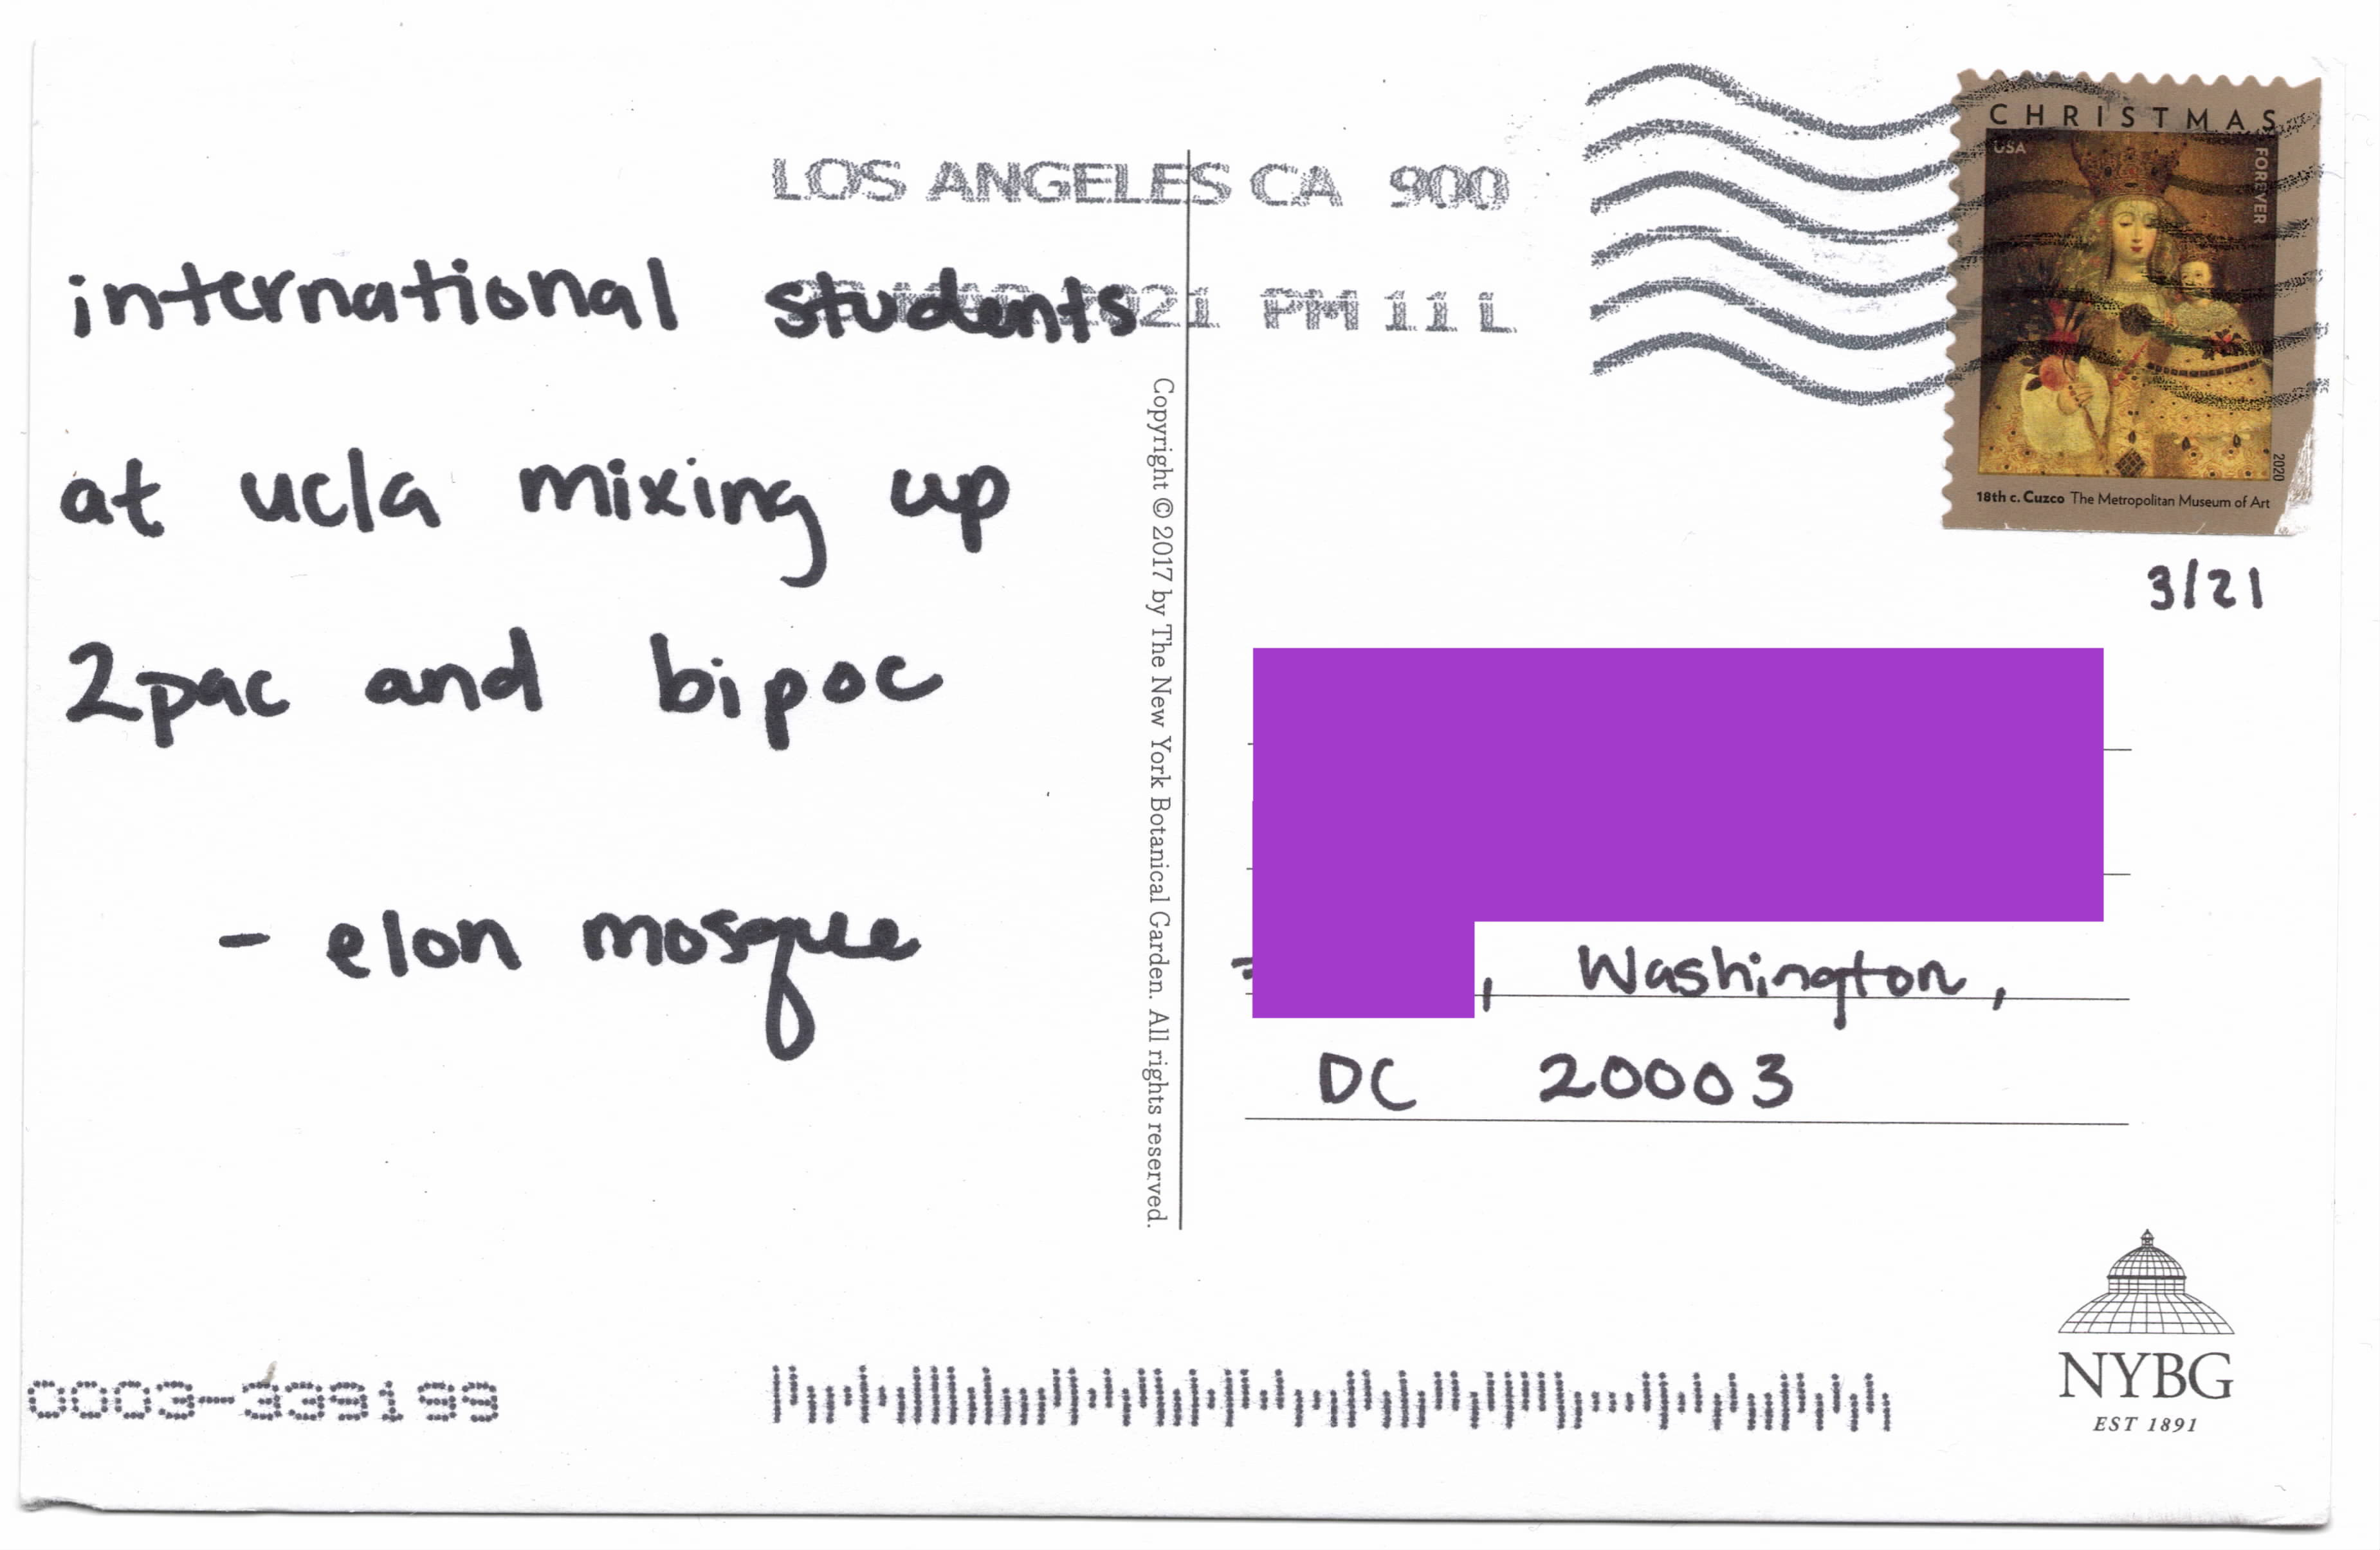 LOS ANGELES CA 900
21 PM 11 L
international students
at ucla mixing up
2pac and bipoc
- elon mosque
Copyright © 2017 by The New York Botanical Garden. All rights reserved.
CHRISTMAS
USA
FOREVER
2020
18th c. Cuzco The Metropolitan Museum of Art
3/21
, Washington,
DC 20003
0003-339199
NYBG
EST 1891